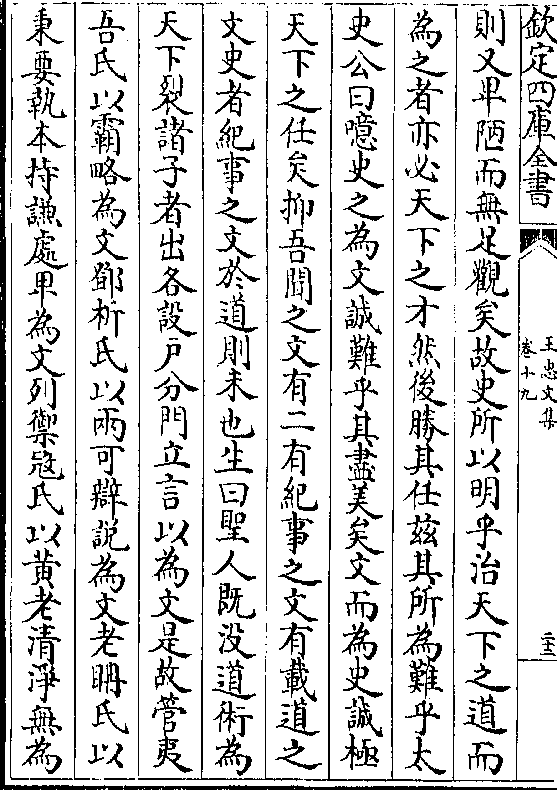 欽定四庫全書
王忠文集
卷十九
三十三
則又卑陋而無足觀矣故史所以明乎治天下之道而
為之者亦必天下之才然後勝其任兹其所為難乎太
史公曰噫史之為文誠難乎其盡美矣文而為史誠極
天下之任矣抑吾聞之文有二有紀事之文有載道之
文史者紀事之文於道則未也生曰聖人既没道術為
天下裂諸子者出各設戶分門立言以為文是故管夷
吾氏以霸略為文鄧析氏以兩可辯説為文老耼氏以
秉要執本持謙處卑為文列禦宼氏以黄老清淨無為